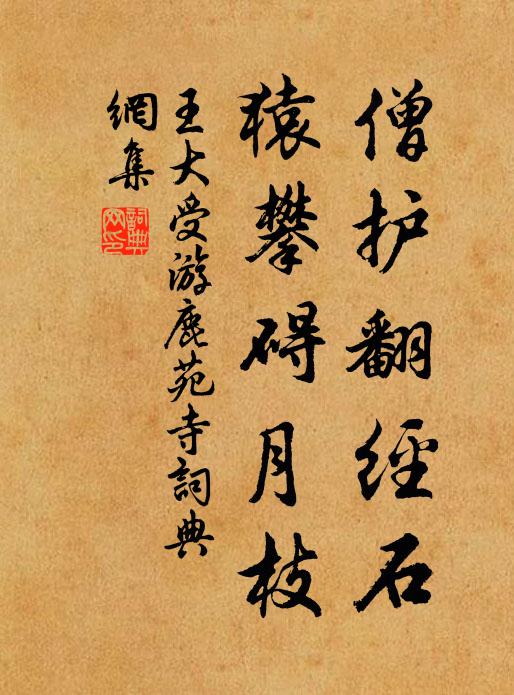 僧护翻經石
猿攀碍月枝
王大受游鹿苑寺詞典
網集
詞典網印